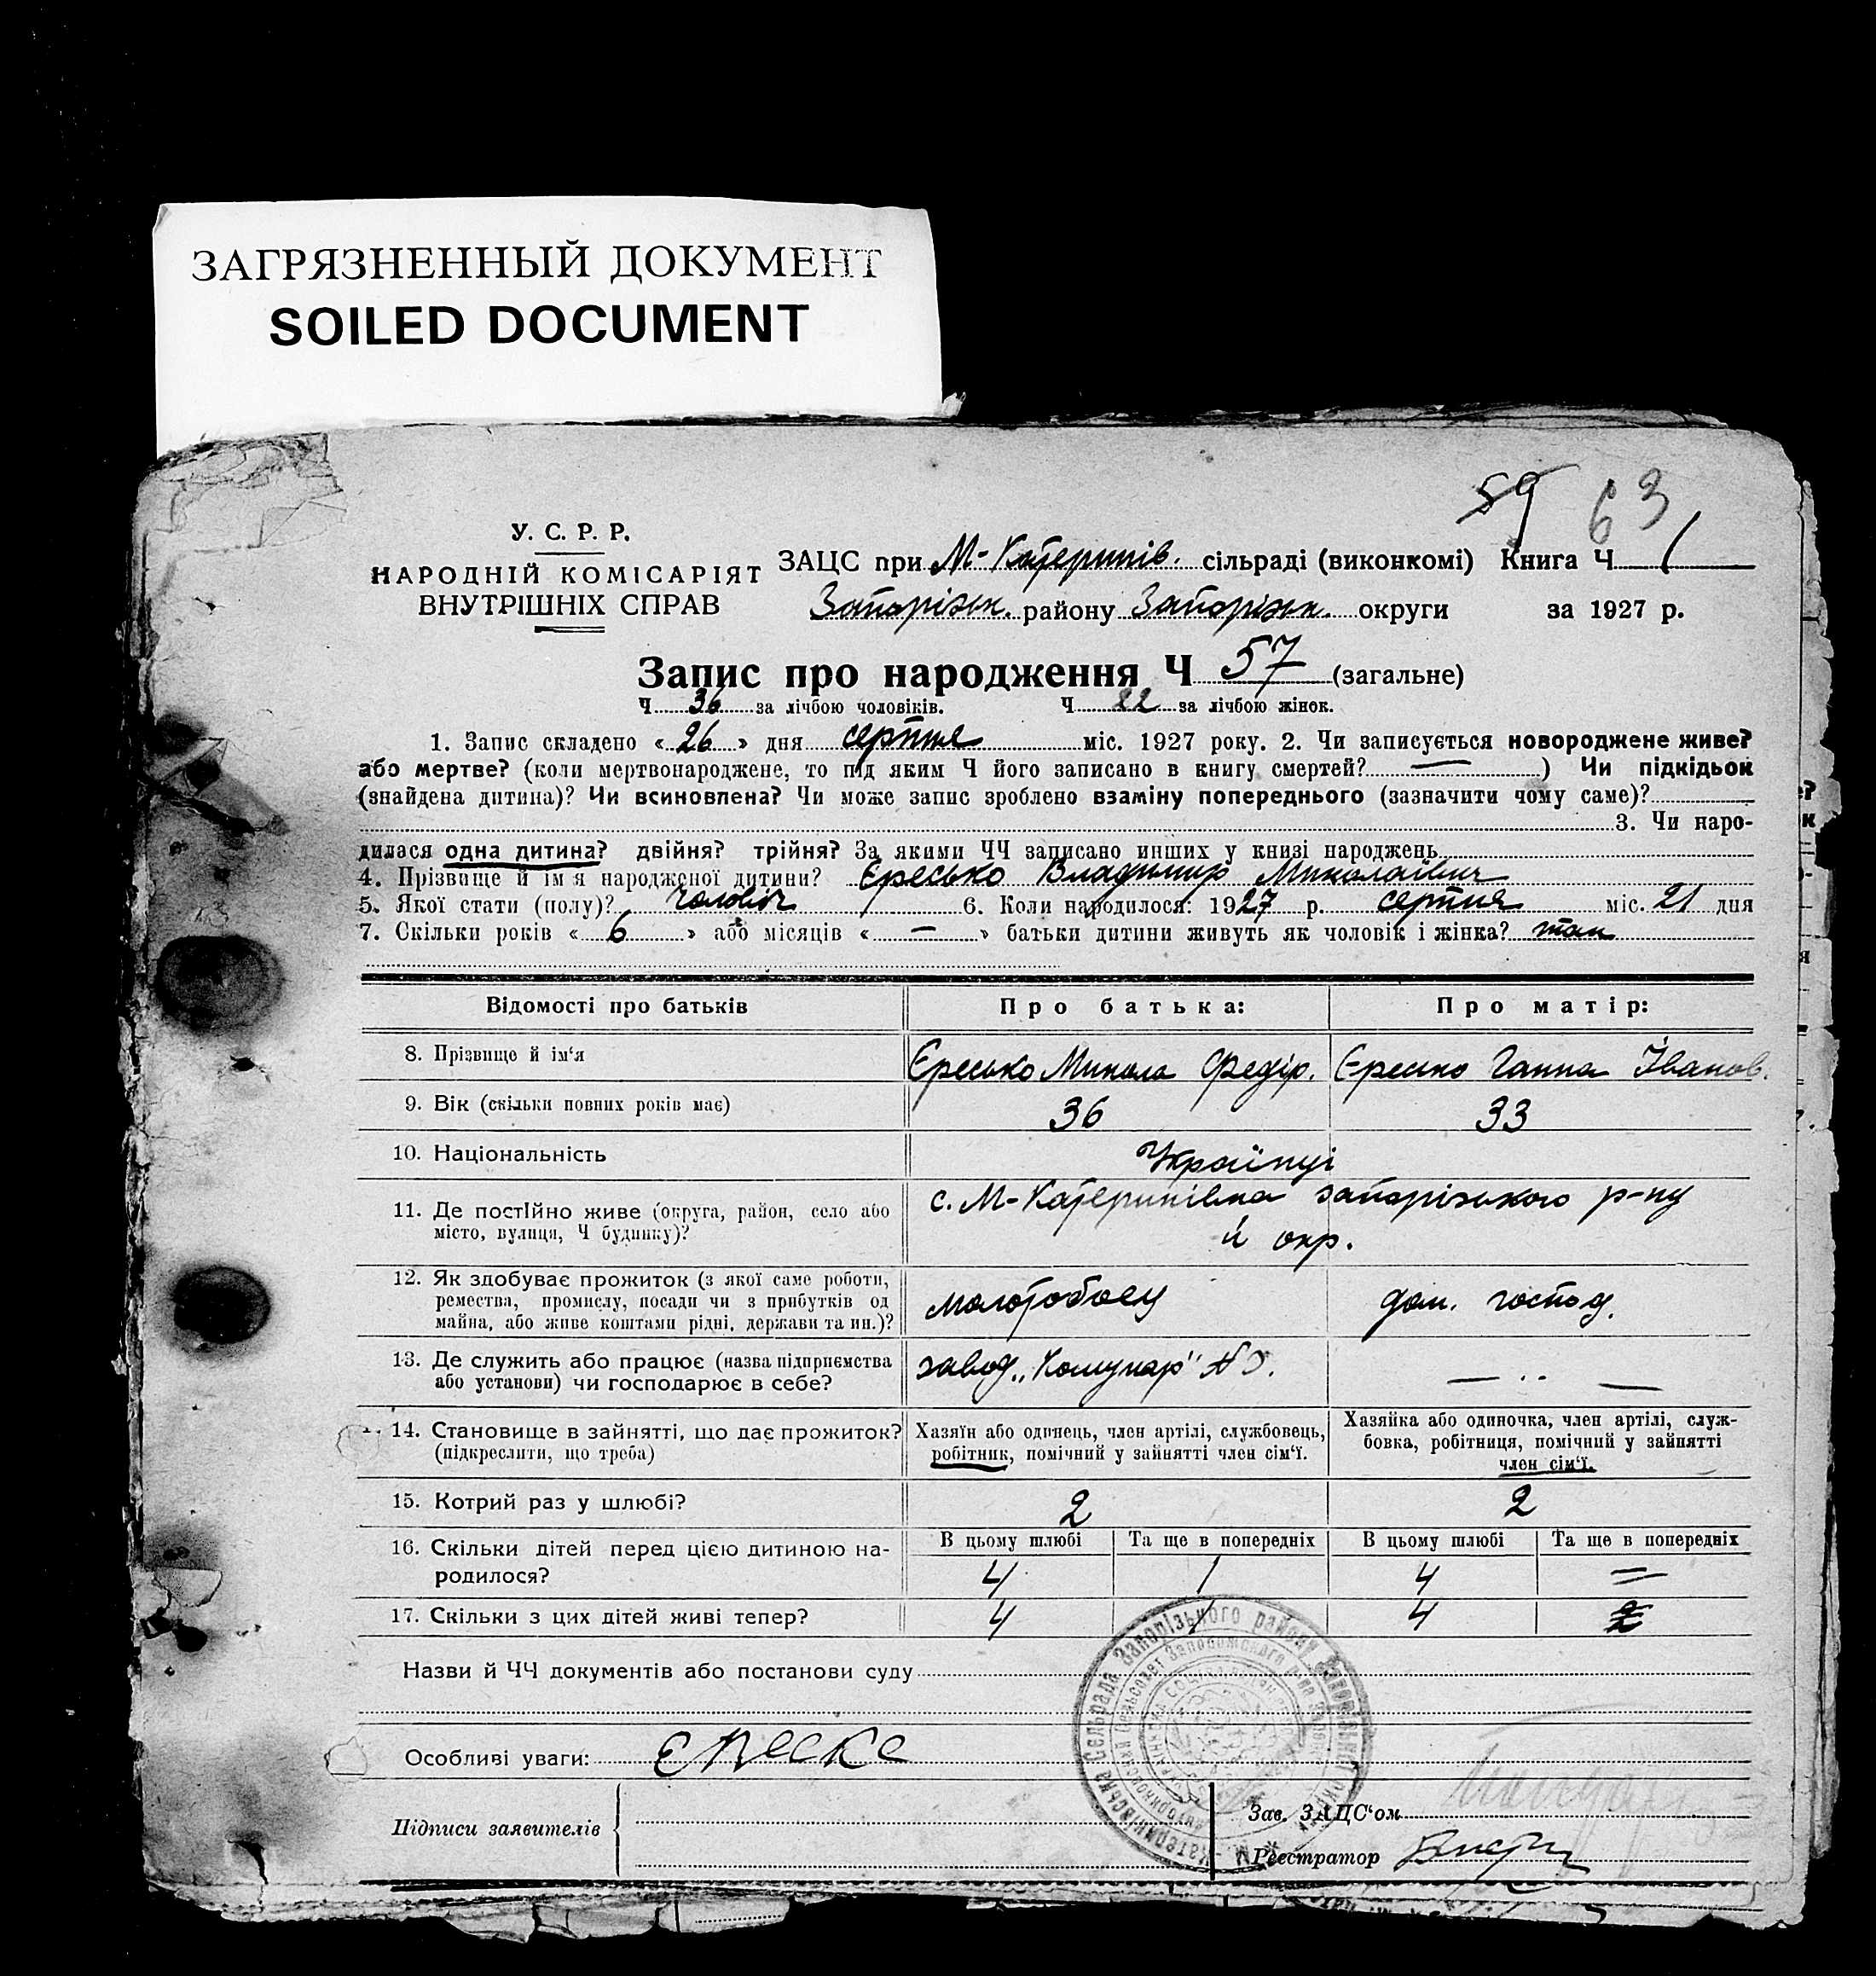 ЗАГРЯЗНЕННЫЙ ДОКУМЕНТ
SOILED DOCUMENT
59 63
У. С. Р. Р.
НАРОДНІЙ КОМІСАРІЯТ
ВНУТРІШНІХ СПРАВ
ЗАЦС при М-Катеринів. сільраді (виконкомі) Книга Ч 1
Запорізьк. району Запорізьк. округи за 1927 р.
Запис про народження Ч 57 (загальне)
Ч 36 за лічбою чоловіків. Ч 22 за лічбою жінок.
1. Запис складено « 26 » дня серпня міс. 1927 року. 2. Чи записується новороджене живе?
або мертве? (коли мертвонароджене, то під яким Ч його записано в книгу смертей? — ) Чи підкідьок
(знайдена дитина)? Чи всиновлена? Чи може запис зроблено взаміну попереднього (зазначити чому саме)?
3. Чи наро-
дилася одна дитина? двійня? трійня? За якими ЧЧ записано инших у книзі народжень
4. Прізвище й ім'я народженої дитини? Єресько Владимир Миколаївич
5. Якої стати (полу)? чоловіч 6. Коли народилося: 1927 р. серпня міс. 21 дня
7. Скільки років « 6 » або місяців « — » батьки дитини живуть як чоловік і жінка? так
Відомості про батьків Про батька: Про матір:
8. Прізвище й ім'я Єресько Микола Федір. Єресько Ганна Іванов.
9. Вік (скільки повних років має) 36 33
10. Національність Українці
11. Де постійно живе (округа, район, село або
місто, вулиця, Ч будинку)?
с. М-Катеринівка запорізького р-ну
й окр.
12. Як здобуває прожиток (з якої саме роботи,
ремества, промислу, посади чи з прибутків од
майна, або живе коштами рідні, держави та ин.)?
молотобоєц дом. господ.
13. Де служить або працює (назва підприємства
або установи) чи господарює в себе?
завод „Комунар" — .. —
14. Становище в зайнятті, що дає прожиток?
(підкреслити, що треба)
Хазяїн або одинець, член артілі, службовець,
робітник, помічний у зайнятті член сім'ї.
Хазяйка або одиночка, член артілі, служ-
бовка, робітниця, помічний у зайнятті
член сім'ї.
15. Котрий раз у шлюбі? 2 2
16. Скільки дітей перед цією дитиною на-
родилося?
В цьому шлюбі Та ще в попередніх В цьому шлюбі Та ще в попередніх
4 1 4 =
17. Скільки з цих дітей живі тепер? 4 1 4
Назви й ЧЧ документів або постанови суду
Особливі уваги:
Підписи заявителів
Зав. ЗАЦС'ом
Реєстратор